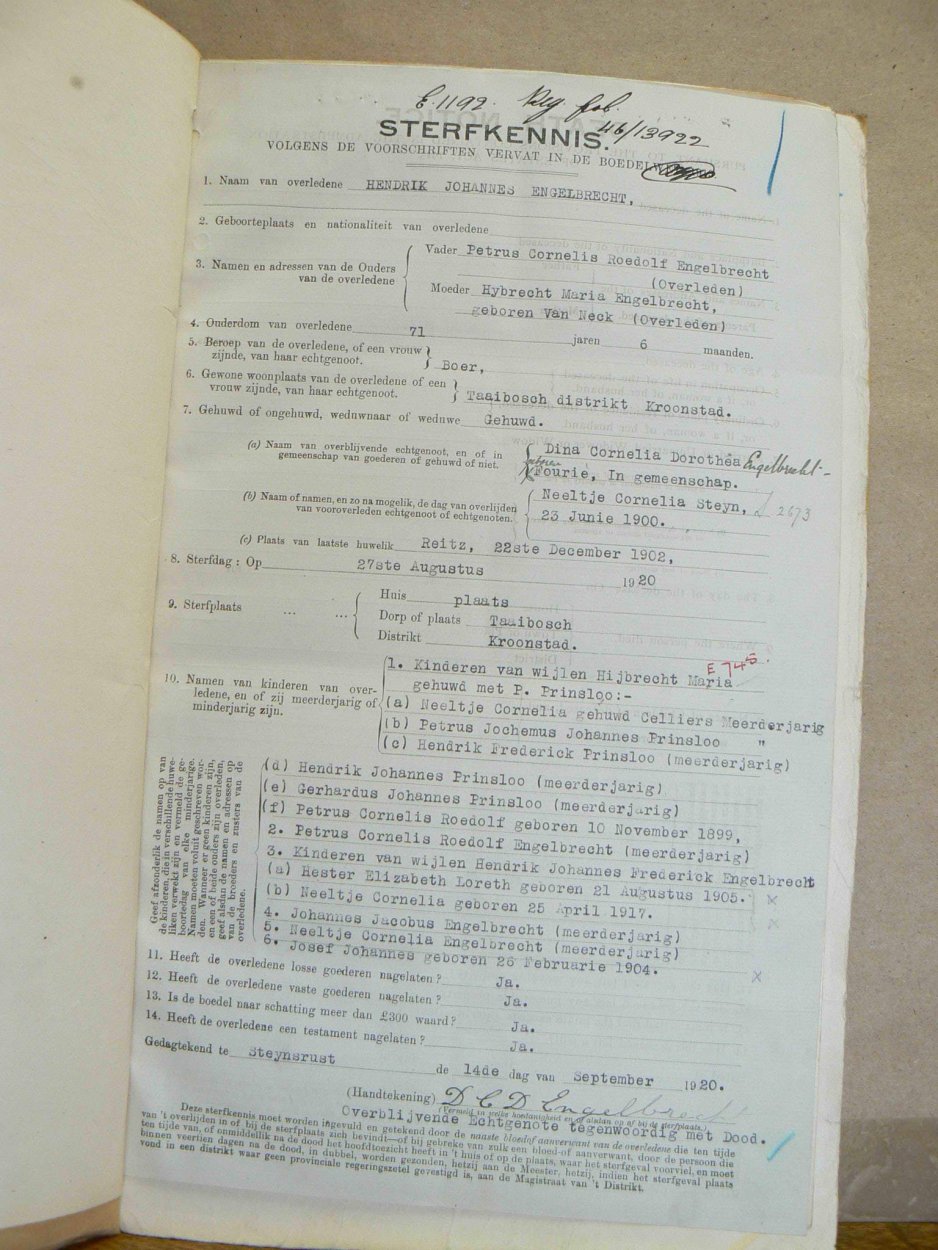 E.1192. Reg. fol. 46/13922
STERFKENNIS.
VOLGENS DE VOORSCHRIFTEN VERVAT IN DE
1. Naam van overledene HENDRIK JOHANNES ENGELBRECHT,
2. Geboorteplaats en nationaliteit van overledene
3. Namen en adressen van de Ouders van de overledene
Vader Petrus Cornelis Roedolf Engelbrecht
(Overleden)
Moeder Hybrecht Maria Engelbrecht,
geboren Van Neck (Overleden)
4. Ouderdom van overledene 71 jaren 6 maanden.
5. Beroep van de overledene, of een vrouw
zijnde, van haar echtgenoot. Boer,
6. Gewone woonplaats van de overledene of een
vrouw zijnde, van haar echtgenoot. Taaibosch distrikt Kroonstad.
7. Gehuwd of ongehuwd, weduwnaar of weduwe Gehuwd.
(a) Naam van overblijvende echtgenoot, en of in
gemeenschap van goederen of gehuwd of niet.
Dina Cornelia Dorothea Engelbrecht
Fourie, In gemeenschap.
(b) Naam of namen, en zo na mogelik, de dag van overlijden
van vooroverleden echtgenoot of echtgenoten.
Neeltje Cornelia Steyn, 2673
23 Junie 1900.
(c) Plaats van laatste huwelik Reitz, 22ste December 1902,
8. Sterfdag: Op 27ste Augustus 1920
9. Sterfplaats ... ...
Huis plaats
Dorp of plaats Taaibosch
Distrikt Kroonstad.
10. Namen van kinderen van over-
ledene, en of zij meerderjarig of
minderjarig zijn.
1. Kinderen van wijlen Hijbrecht Maria E 745.
gehuwd met P. Prinsloo:-
(a) Neeltje Cornelia gehuwd Celliers Meerderjarig
(b) Petrus Jochemus Johannes Prinsloo "
(c) Hendrik Frederick Prinsloo (meerderjarig)
Geef afzonderlik de namen op van
de kinderen, die in verschillende huwe-
liken verwekt zijn en vermeld de ge-
boortedag van elke minderjarige.
Namen moeten voluit geschreven wor-
den. Wanneer er geen kinderen zijn,
en een of beide ouders zijn overleden,
geef alsdan de namen en adressen op
van de broeders en zusters van de
overledene.
(d) Hendrik Johannes Prinsloo (meerderjarig)
(e) Gerhardus Johannes Prinsloo (meerderjarig)
(f) Petrus Cornelis Roedolf geboren 10 November 1899,
2. Petrus Cornelis Roedolf Engelbrecht (meerderjarig)
3. Kinderen van wijlen Hendrik Johannes Frederick Engelbrecht
(a) Hester Elizabeth Loreth geboren 21 Augustus 1905. x
(b) Neeltje Cornelia geboren 25 April 1917. x
4. Johannes Jacobus Engelbrecht (meerderjarig)
5. Neeltje Cornelia Engelbrecht (meerderjarig)
6. Josef Johannes geboren 26 Februarie 1904. x
11. Heeft de overledene losse goederen nagelaten? Ja.
12. Heeft de overledene vaste goederen nagelaten? Ja.
13. Is de boedel naar schatting meer dan £300 waard? Ja.
14. Heeft de overledene een testament nagelaten? Ja.
Gedagtekend te Steynsrust de 14de dag van September 1920.
(Handtekening) D C D Engelbrecht
(Vermeld in welke hoedanigheid en of alsdan op of bij de sterfplaats.)
Overblijvende Echtgenote tegenwoordig met Dood.
Deze sterfkennis moet worden ingevuld en getekend door de naaste bloedof aanverwant van de overledene die ten tijde
van 't overlijden in of bij de sterfplaats zich bevindt—of bij gebreke van zulk een bloed-of aanverwant, door de persoon die
ten tijde van, of onmiddellik na de dood het hoofdtoezicht heeft in 't huis of op de plaats, waar het sterfgeval voorviel, en moet
binnen veertien dagen na de dood, in dubbel, worden gezonden, hetzij aan de Meester, hetzij, indien het sterfgeval plaats
vond in een distrikt waar geen provinciale regeringszetel gevestigd is, aan de Magistraat van 't Distrikt.